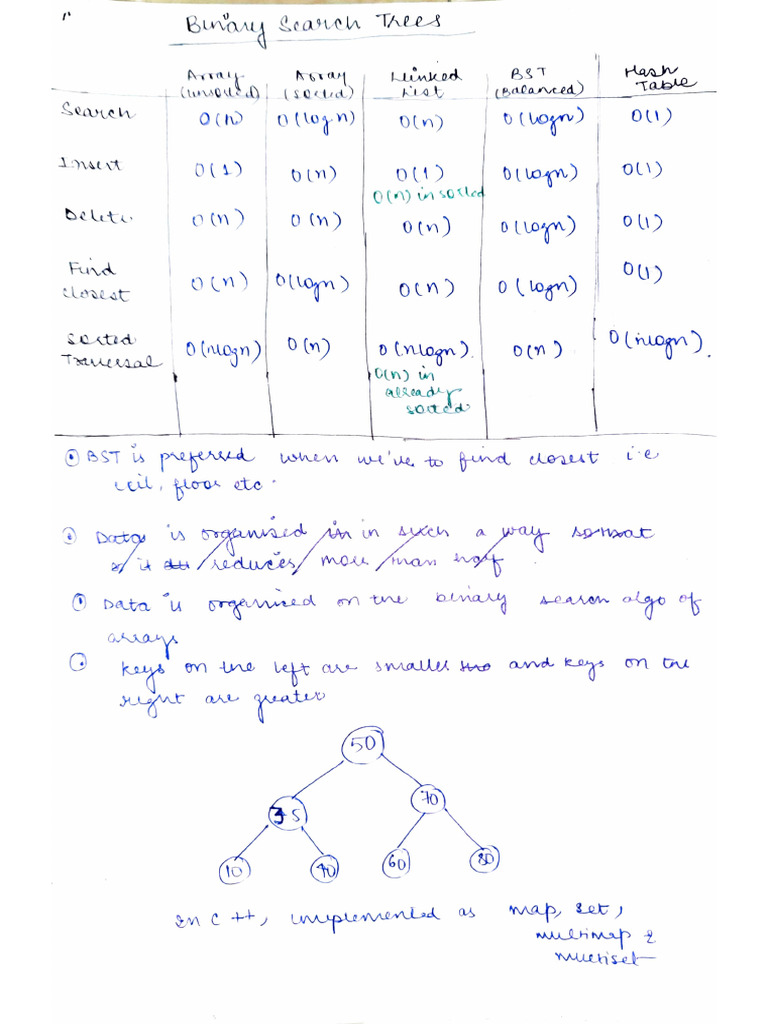 Binary Search Trees
Array (Unsorted) Array (Sorted) Linked List BST (Balanced) Hash Table
Search O(n) O(log n) O(n) O(logn) O(1)
Insert O(1) O(n) O(1) O(logn) O(1)
O(n) in sorted
Delete O(n) O(n) O(n) O(logn) O(1)
Find closest O(n) O(logn) O(n) O(logn) O(1)
Sorted Traversal O(nlogn) O(n) O(nlogn). O(n) O(nlogn).
O(n) in
already
sorted
BST is preferred when we've to find closest i.e
ceil, floor etc.
Data is organised in in such a way so that
it reduces more than half
Data is organized on the binary search algo of
arrays
Keys on the left are smaller and keys on the
right are greater
50
35 70
10 40 60 80
In C++, implemented as map, set,
multimap &
multiset